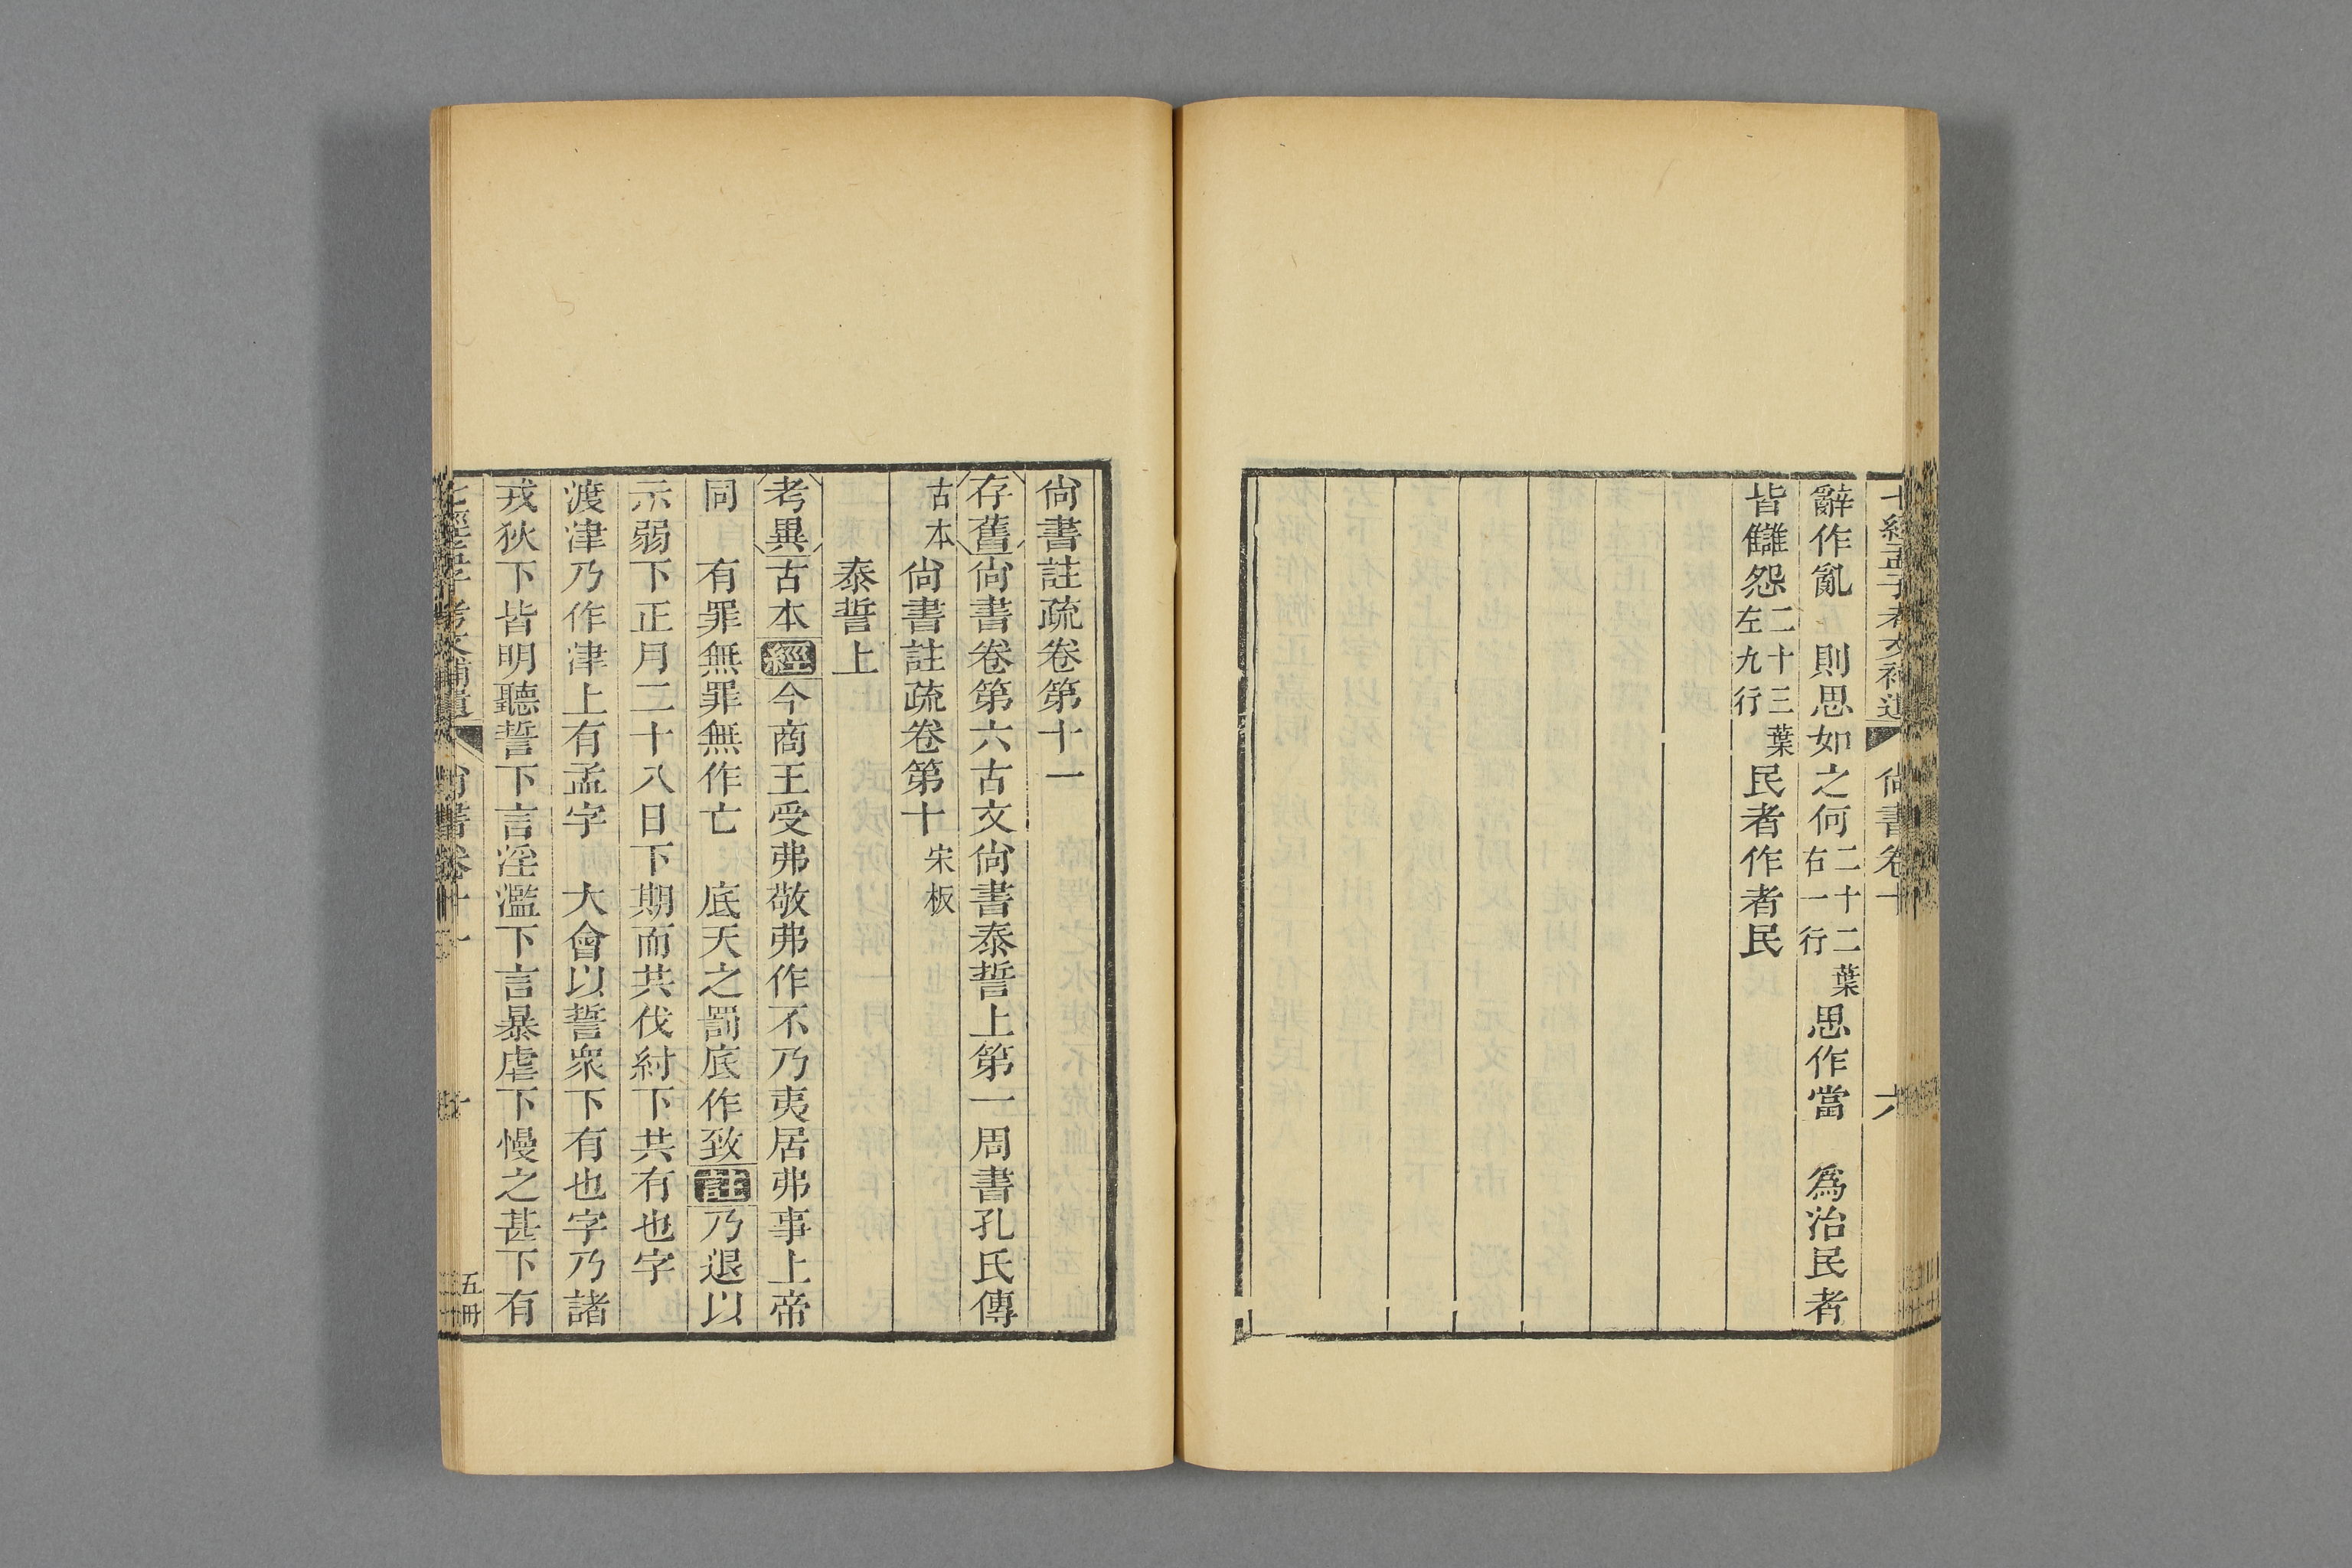 尚書卷十
六
辭作亂　則思如之何二十二葉右一行思作當　為治民者
皆讎怨二十三葉左九行民者作者民
尚書註疏卷第十一
存舊尚書卷第六古文尚書泰誓上第一周書孔氏傳
古本尚書註疏卷第十宋板
泰誓上
考異古本經今商王受弗敬弗作不乃夷居弗事上帝
同　有罪無罪無作亡　底天之罰底作致註乃退以
示弱下正月二十八日下期而共伐紂下共有也字
渡津乃作津上有孟字　大會以誓衆下有也字乃諸
戎狄下皆明聽誓下言淫濫下言暴虐下慢之甚下有
五冊